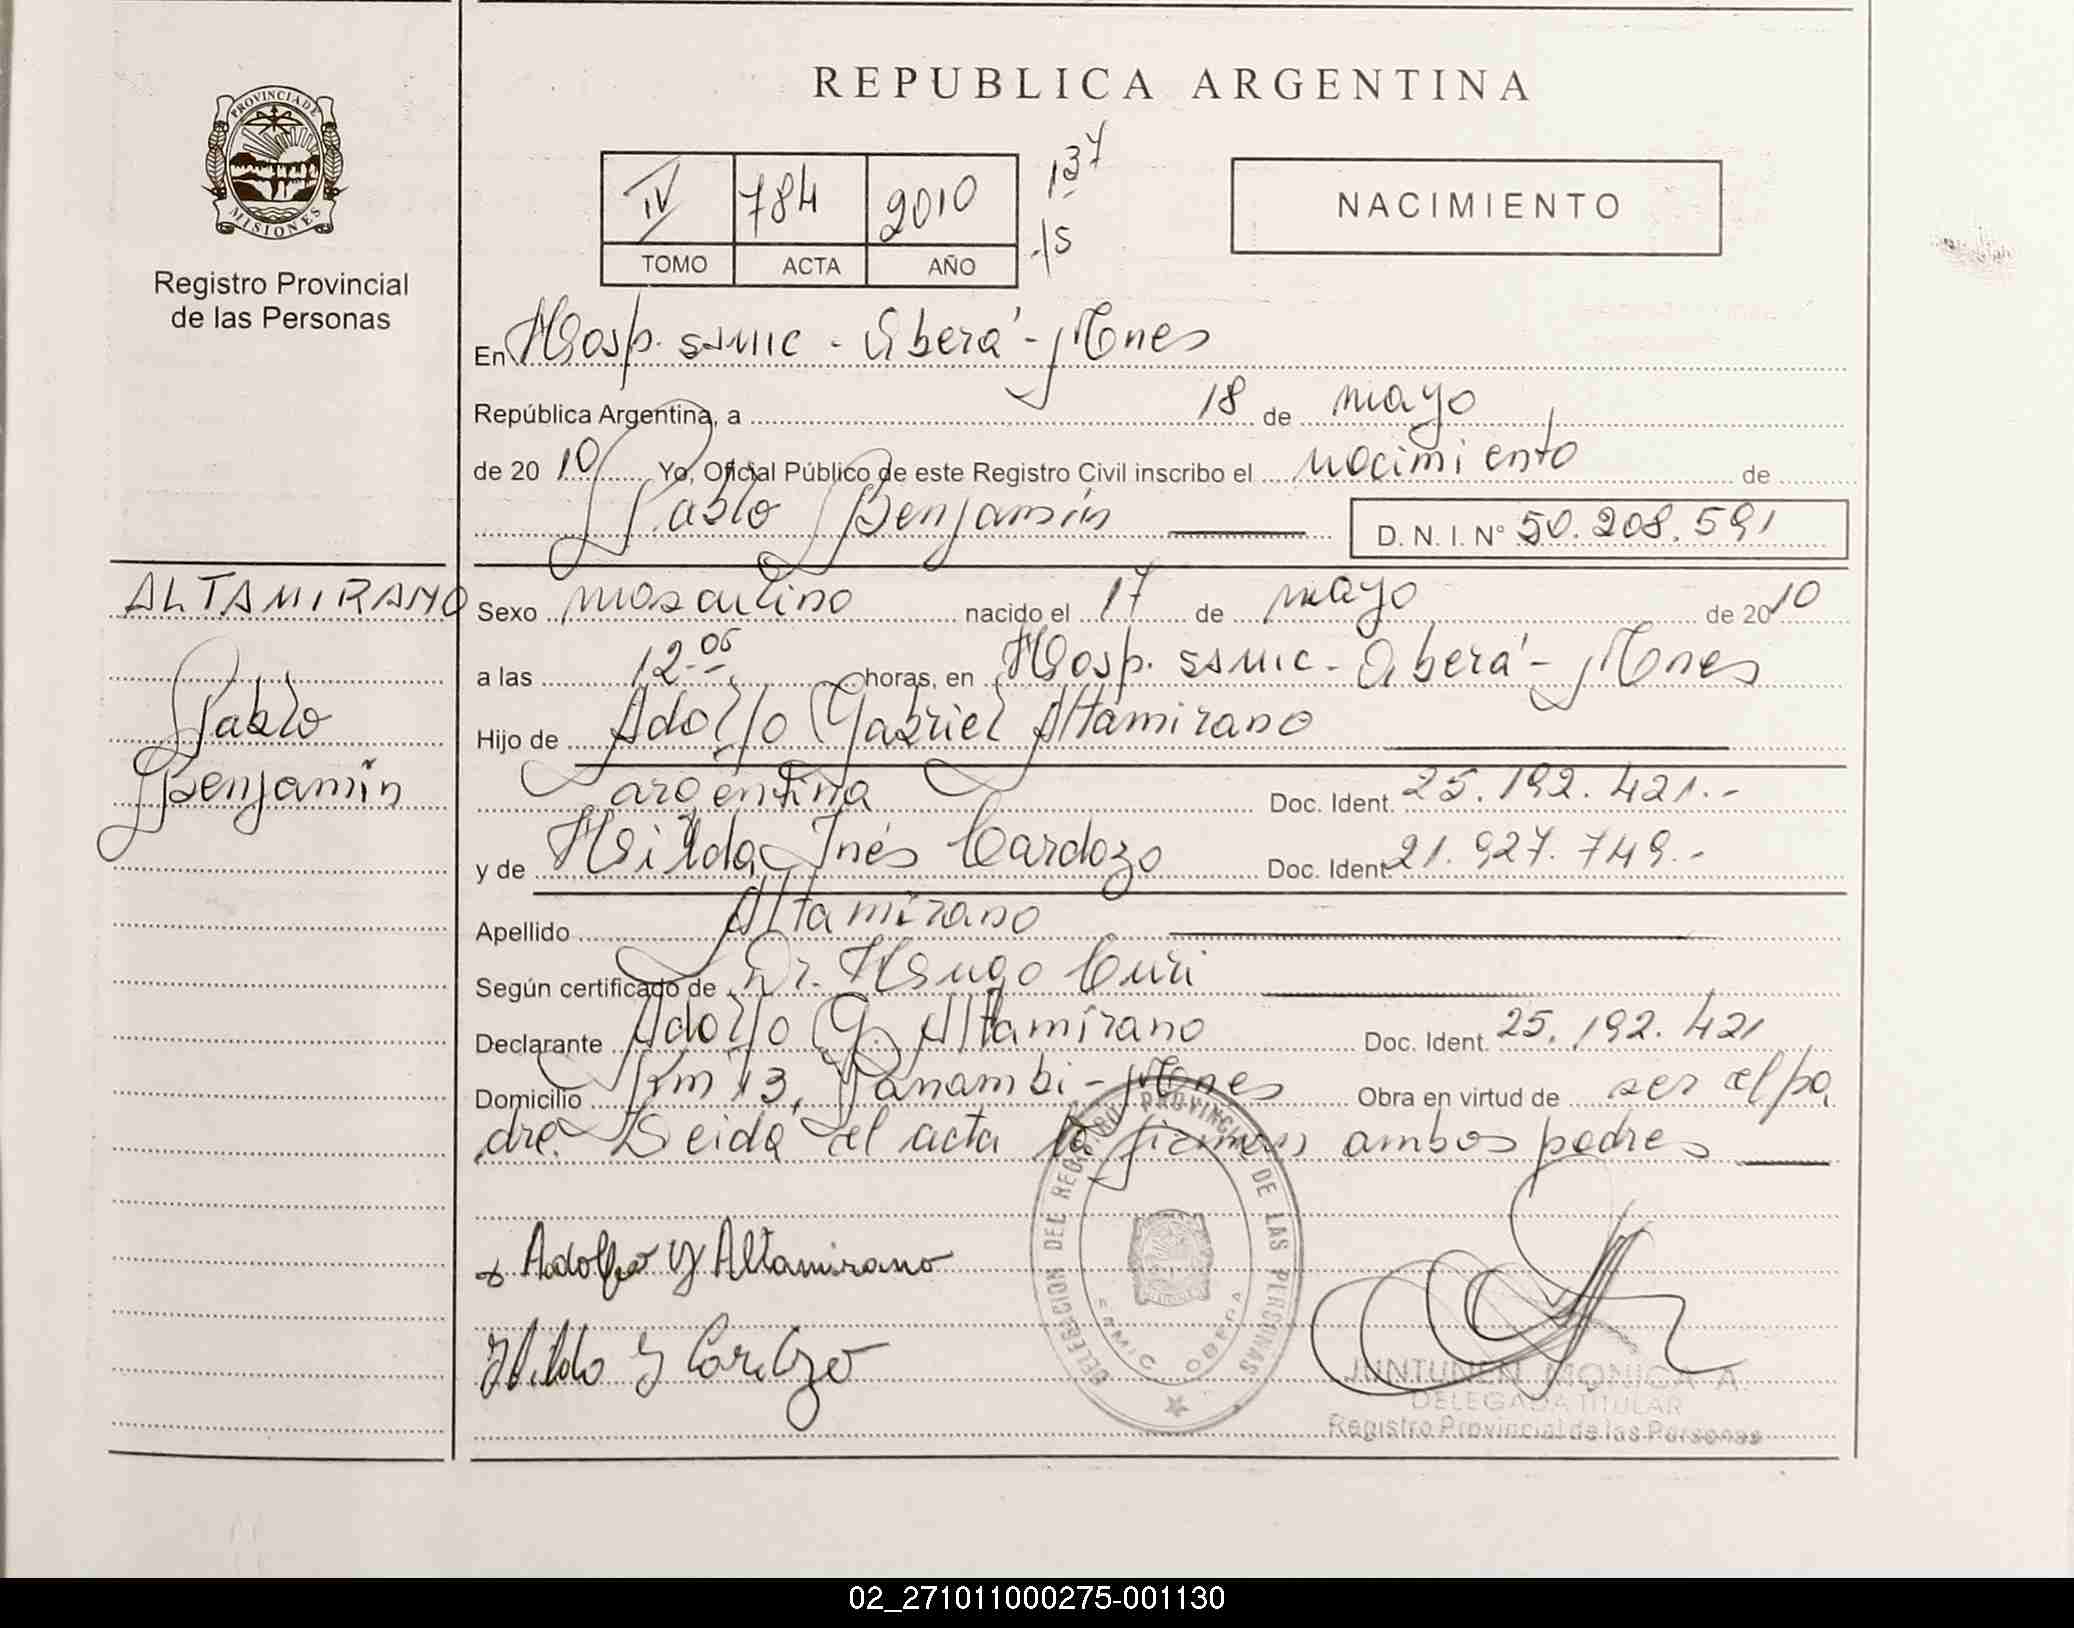 REPUBLICA ARGENTINA
PROVINCIA DE
MISIONES
Registro Provincial
de las Personas
IV 784 2010
TOMO ACTA AÑO
137
15
NACIMIENTO
En Hosp. SAMIC - Oberá - Mnes
República Argentina, a 18 de mayo
de 20 10 Yo, Oficial Público de este Registro Civil inscribo el nacimiento de
Pablo Benjamín D. N. I. N° 50.208.591
ALTAMIRANO
Pablo
Benjamín
Sexo masculino nacido el 17 de mayo de 20 10
a las 12.05 horas, en Hosp. SAMIC - Oberá - Mnes
Hijo de Adolfo Gabriel Altamirano
argentina Doc. Ident. 25.192.421.-
y de Hilda Inés Cardozo Doc. Ident. 21.927.749.-
Apellido Altamirano
Según certificado de Dr. Hugo Curi
Declarante Adolfo G. Altamirano Doc. Ident. 25.192.421
Domicilio Km 13, Panambi - Mnes Obra en virtud de ser el pa
dre. Leida el acta la firman ambos padres
Adolfo G Altamirano
Hilda I Cardozo
DELEGACION DEL REGISTRO PROVINCIAL DE LAS PERSONAS
SAMIC OBERA
JUNTUNEN MONICA A.
DELEGADA TITULAR
Registro Provincial de las Personas
02_271011000275-001130